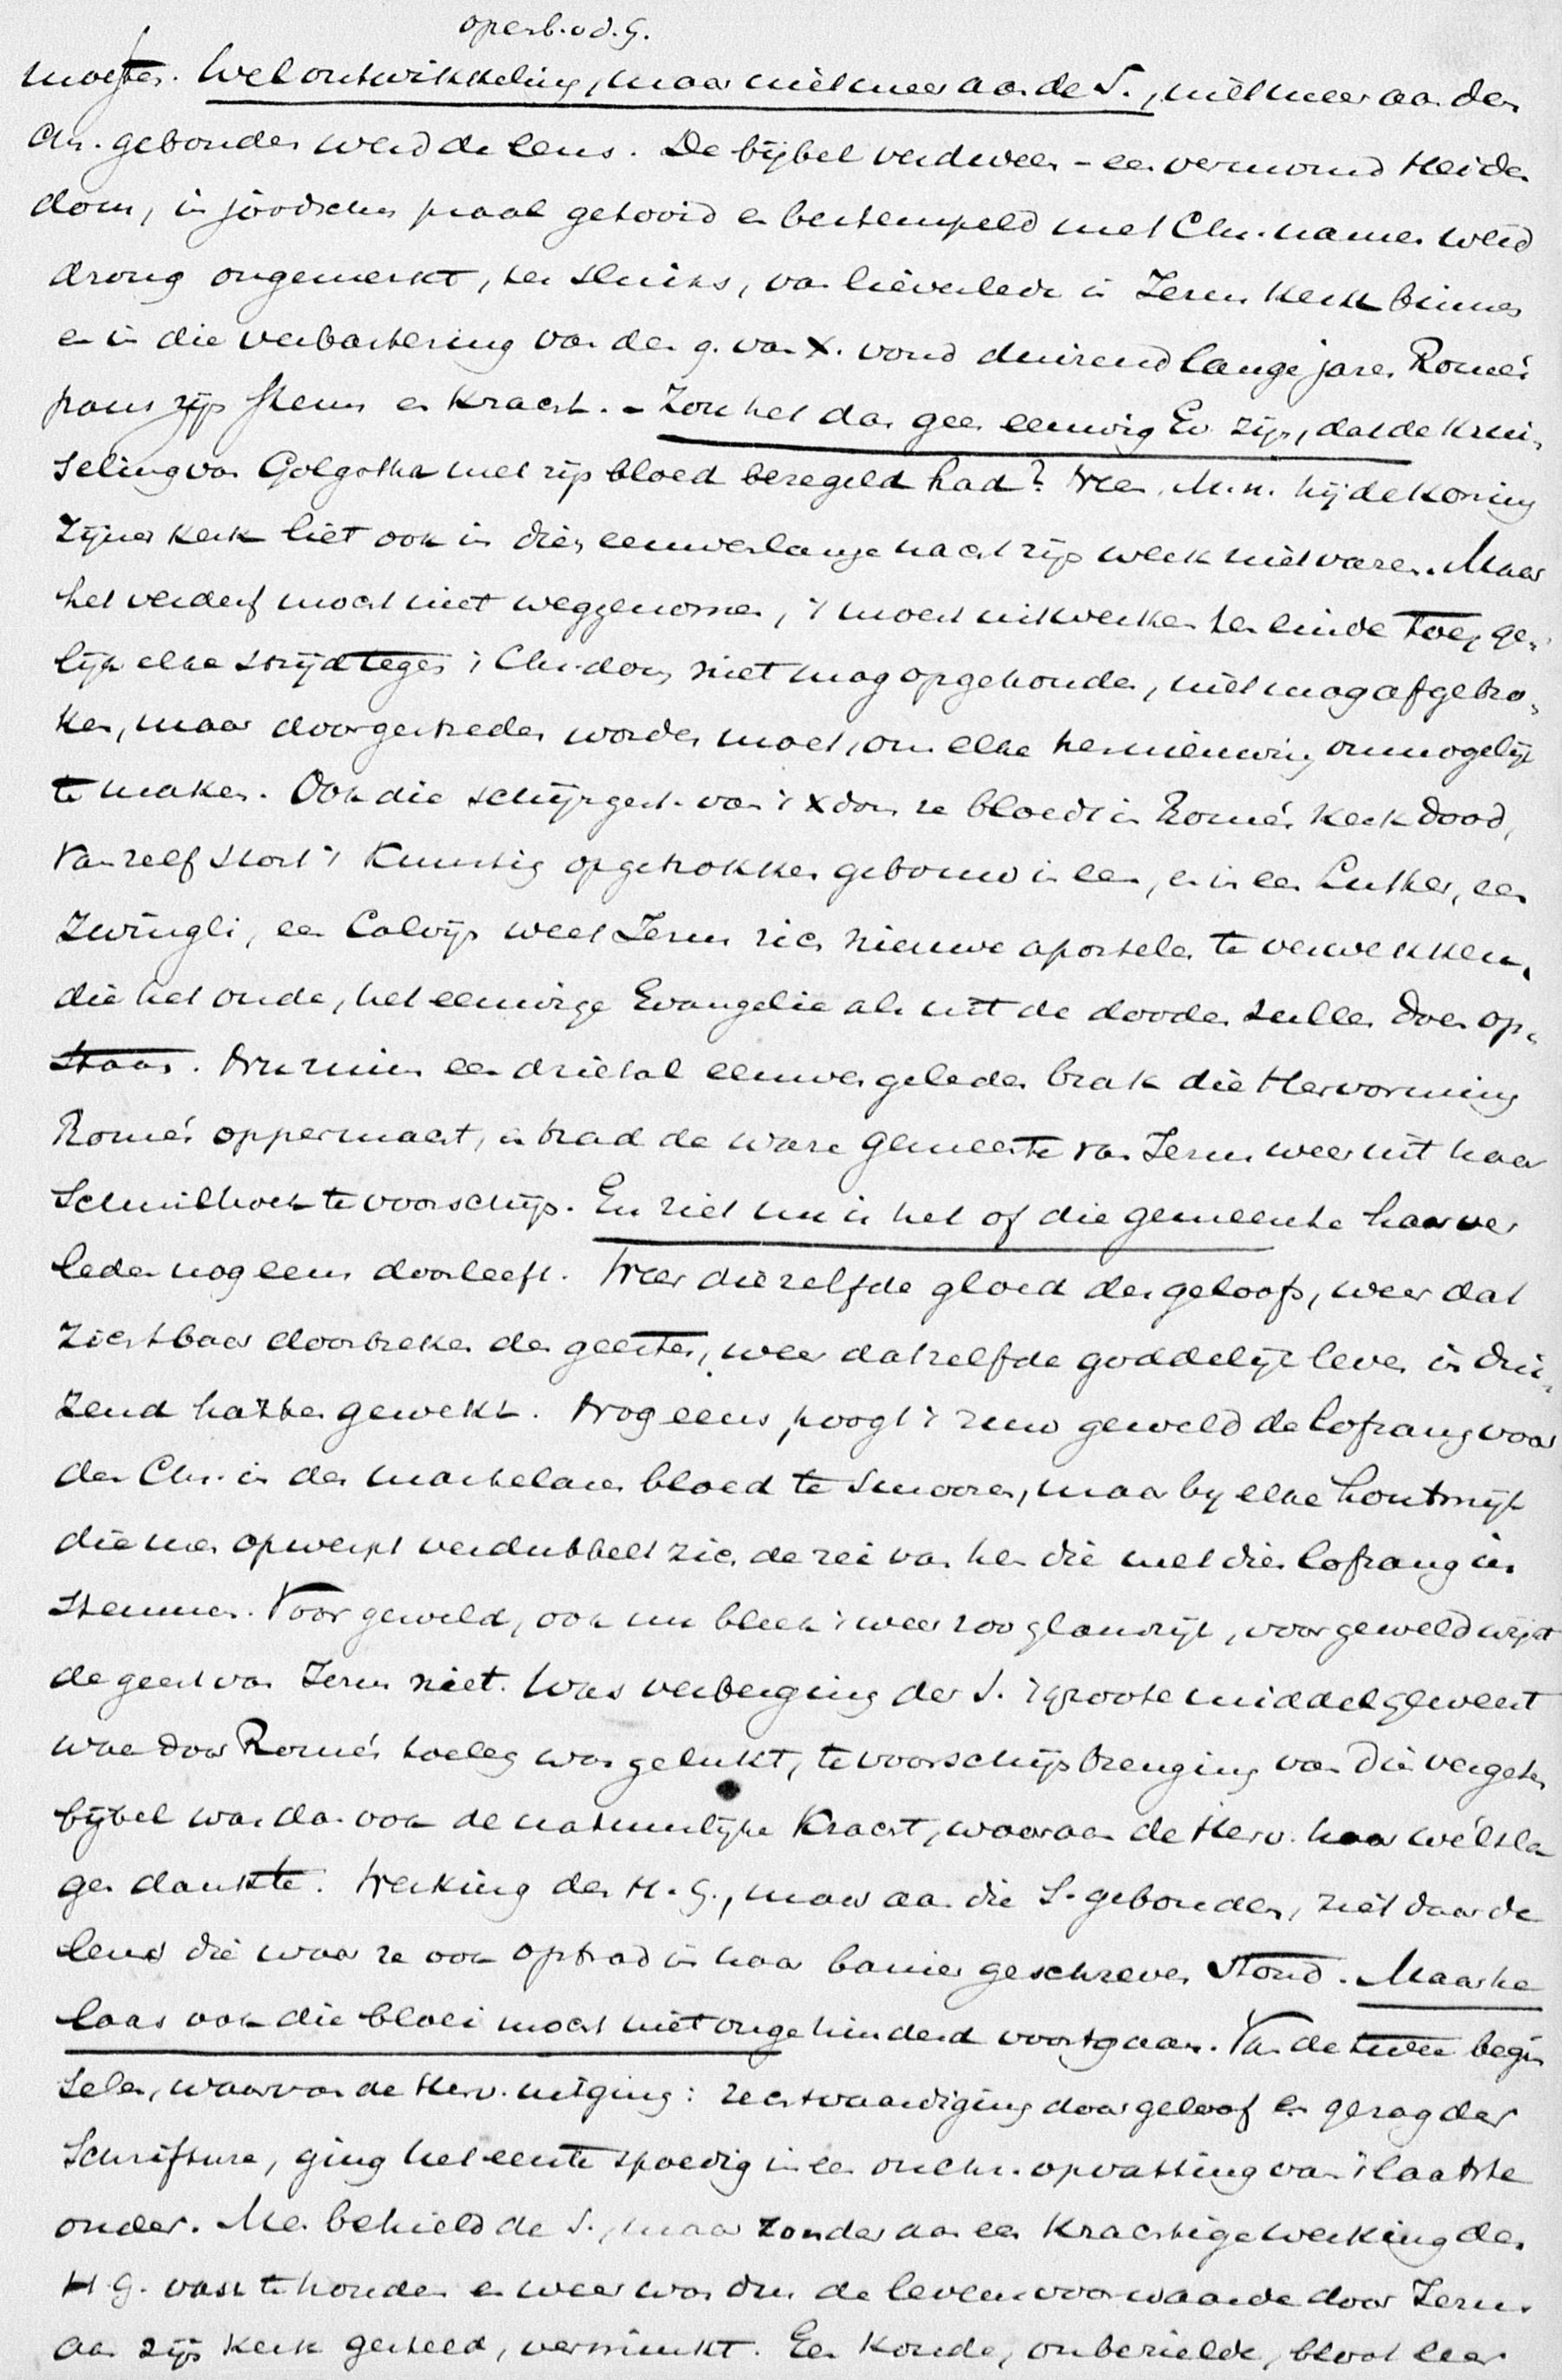 openb. v d. G.
moesten. Wel ontwikkeling, maar niet meer aan de S., niet meer aan den
Chr. gebonden werd de leus. De bijbel verdween – een vermomd Heiden
dom, in joodschen praal getooid en bestempeld met Chr. namen werd
drong ongemerkt, ter sluiks, van lieverlede in Jezus kerk binnen
en in die verbastering van den g. van X. vond duizend lange jaren Rome's
paus zijn steun en kracht. – Zou het dan geen eeuwig Ev. zijn, dat de krui-
seling van Golgotha met zijn bloed bezegeld had? Neen, M.n. hij de koning
zijner kerk liet ook in dien eeuwenlange nacht zijn werk niet varen. Maar
het verderf mocht niet weggenomen, 't moest uitwerken ten einde toe, ge-
lijk elke strijd tegen 't Chr.dom niet mag opgehouden, niet mag afgebro-
ken, maar doorgestreden worden moet, om elke hernieuwing onmogelijk
te maken. Ook die schijngest. van 't Xdom ze bloedt in Rome's kerk dood,
van zelf stort 't kunstig opgetrokken gebouw in een, en in een Luther, een
Zwingli, een Calvijn weet Jezus zich nieuwe apostelen te verwekken,
die het oude, het eeuwige Evangelie als uit de dooden zullen doen op-
staan. Nu ruim een drietal eeuwen geleden brak die Hervorming
Rome's oppermacht, en trad de ware gemeente van Jezus weer uit haar
schuilhoek te voorschijn. En ziet nu is het of die gemeente haar ver
leden nog eens doorleeft. Weer diezelfde gloed des geloofs, weer dat
zichtbaar doorbreken des geestes, weer datzelfde goddelijk leven in dui-
zend harten gewekt. Nog eens poogt 't ruw geweld de lofzang voor
den Chr. in der martelaren bloed te smooren, maar by elke houtmijt
die men opwerpt verdubbelt zich de rei van hen die met dien lofzang in
stemmen. Voor geweld, ook nu bleek 't weer zoo glansrijk, voor geweld wijkt
de geest van Jezus niet. Was verberging der S. 't groote middel geweest
waardoor Rome's toeleg was gelukt, te voorschijn brenging van dien vergeten
bijbel was dan ook de natuurlijke kracht, waaraan de Herv. haar wélsla
gen dankte. Werking des H. G., maar aan die S. gebonden, ziet daar de
leus die waar ze ook optrad in haar banier geschreven stond. Maar he
laas ook die bloei mocht niet ongehinderd voortgaan. Van de twee begin
selen, waarvan de Herv. uitging: rechtvaardiging door geloof en gezag der
Schrifture, ging het eerste spoedig in een onchr. opvatting van 't laatste
onder. Men behield de S., maar zonder aan een krachtige werking des
H G. vast te houden en weer was dus de levensvoorwaarde door Jezus
aan zijn kerk gesteld, verminkt. Een koude, onbezielde, bloot leer